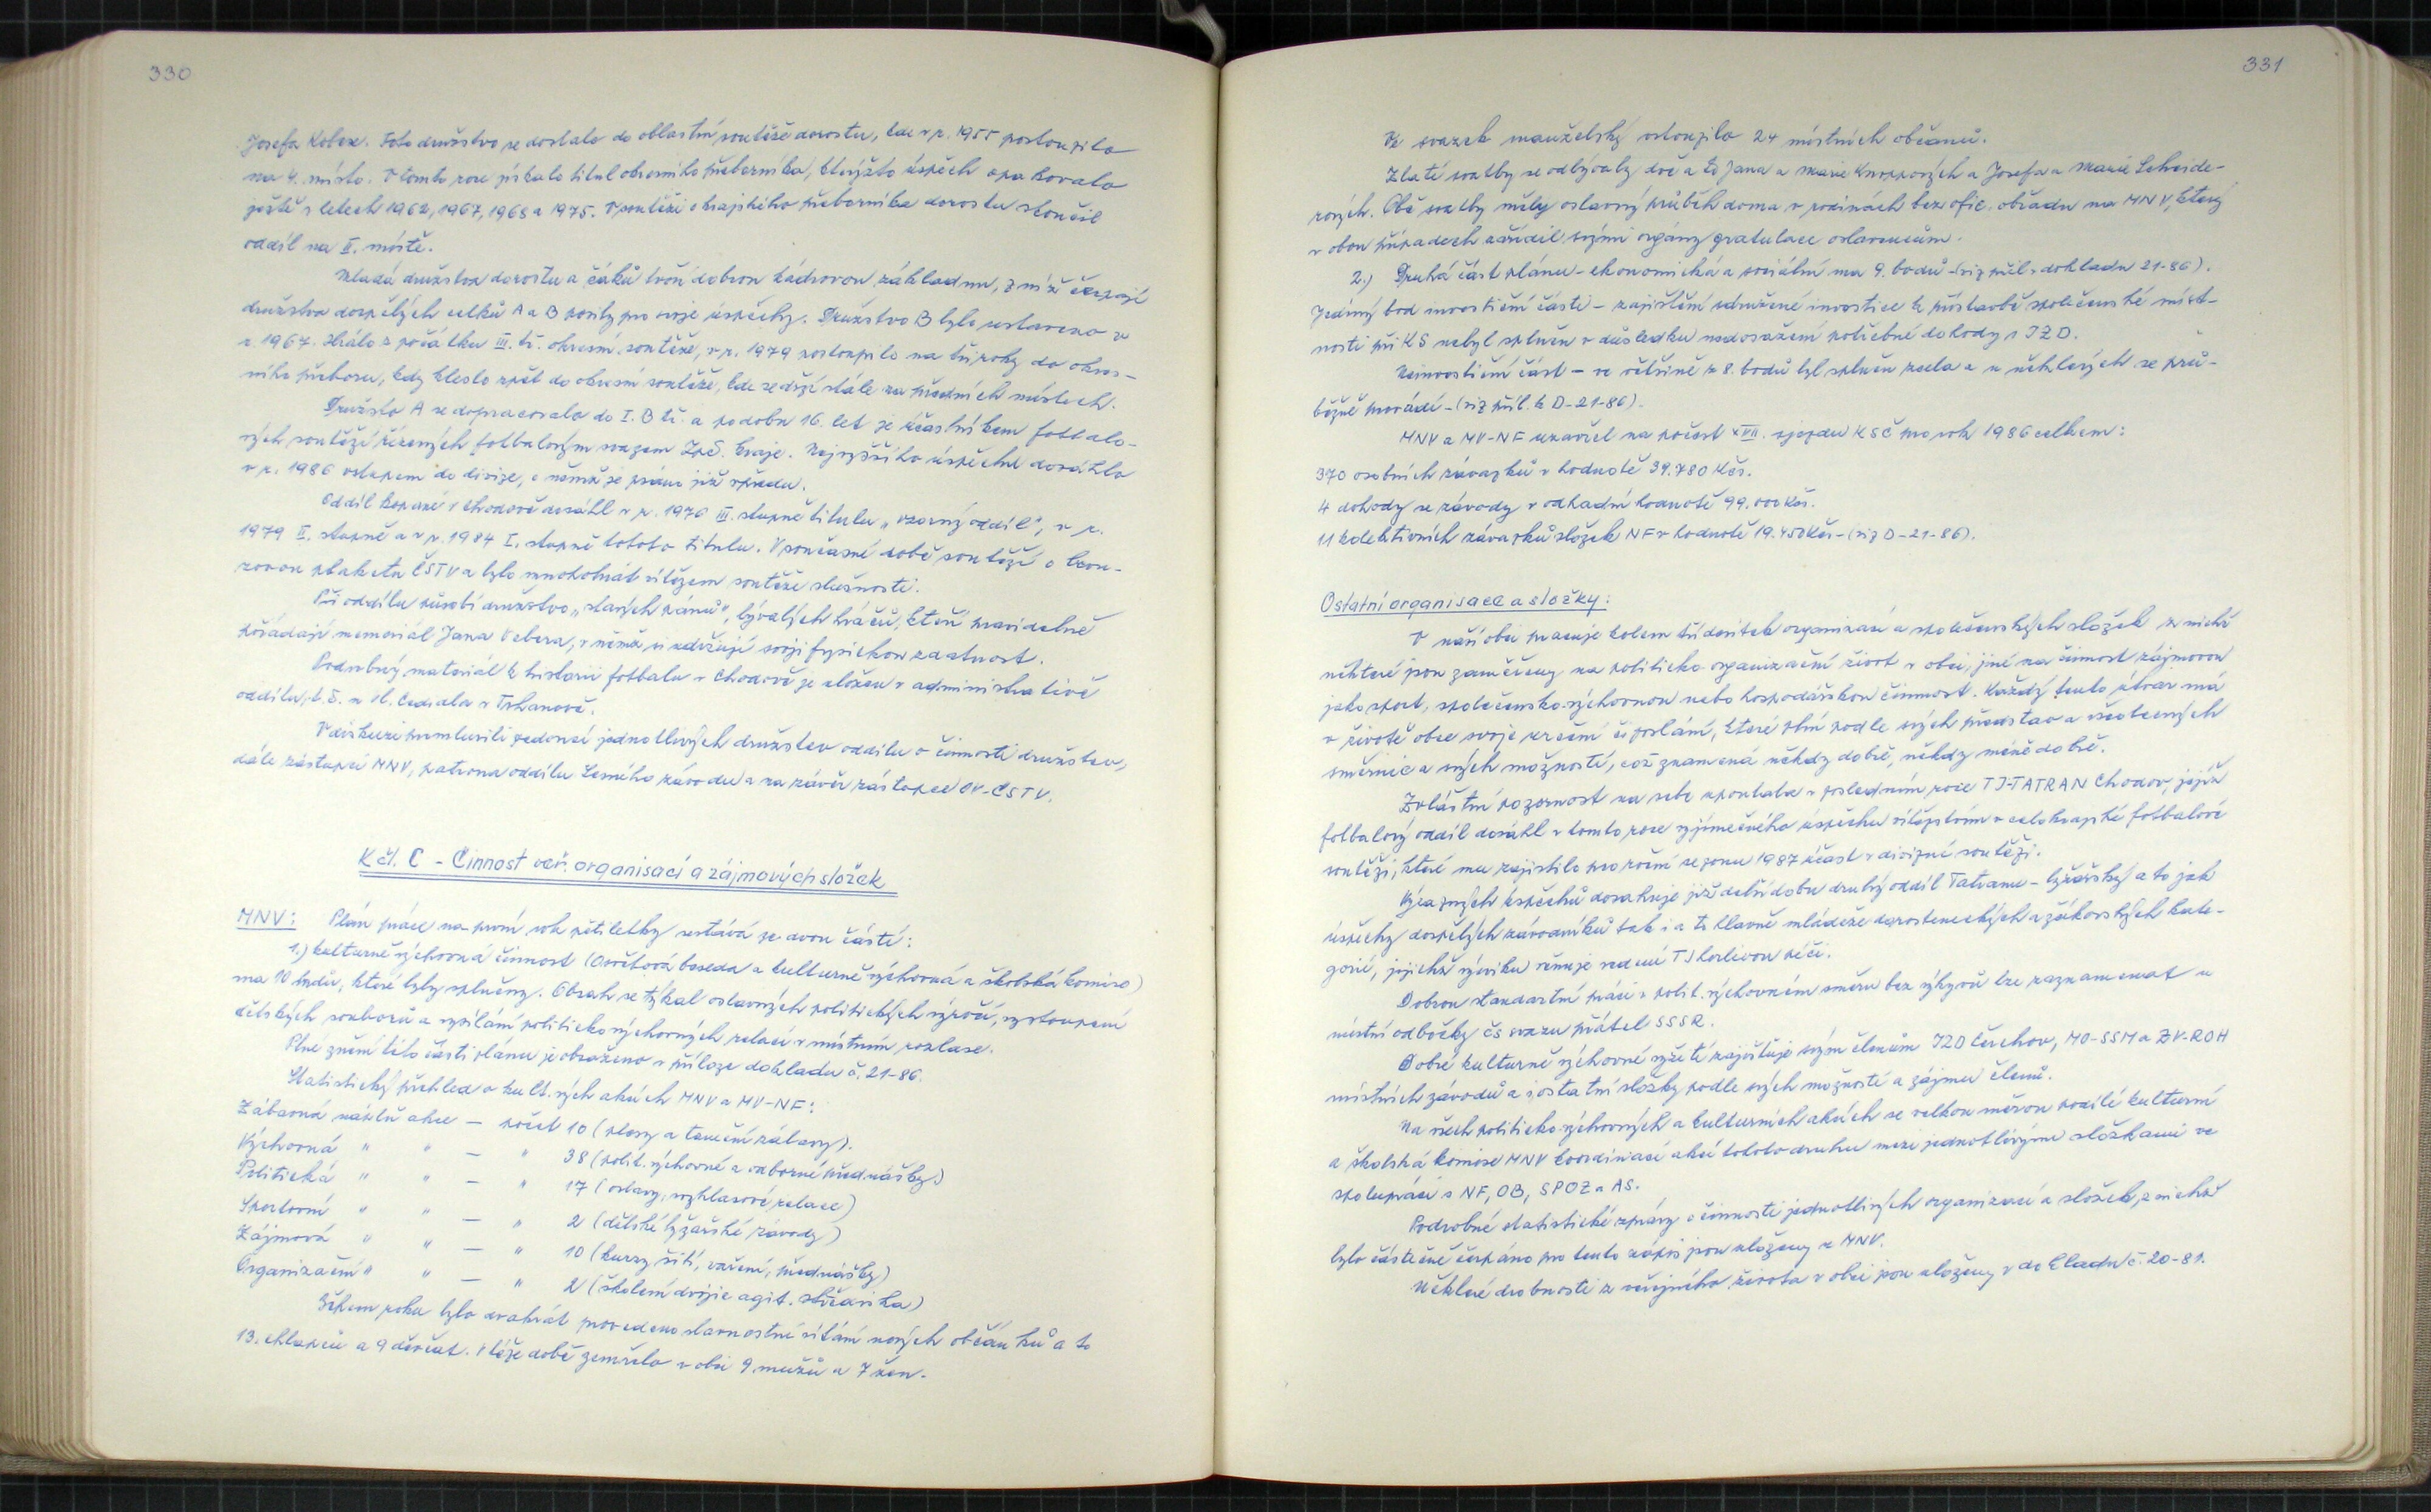 330
Josefa Kobese. Toto družstvo se dostalo do oblastní soutěže dorostu, kde v r. 1955 postoupilo
na 4. místo. V tomto roce získalo titul okresního přeborníka, kterýžto úspěch opakovalo
ještě v letech 1962, 1967, 1968 a 1975. V soutěži o krajského přeborníka dorostu skončil
oddíl na II. místě.
Mladá družstva dorostu a žáků tvoří dobrou kádrovou základnu, z níž čerpají
družstva dospělých celků A a B posily pro svoje úspěchy. Družstvo B bylo ustaveno v
r. 1967. Hrálo z počátku III. tř. okresní soutěže, v r. 1979 postoupilo na tři roky do okres-
ního přeboru, kdy kleslo zpět do okresní soutěže, kde se drží stále na předních místech.
Družsto A se dopracovalo do I. B tř. a po dobu 16. let je účastníkem fotbalo-
vých soutěží řízených fotbalovým svazem Zpč. kraje. Nejvyššího úspěchu dosáhlo
v r. 1986 vstupem do divize, o němž je psáno již vpředu.
Oddíl kopané v Chodově dosáhl v r. 1976 III. stupně titulu „vzorný oddíl“, v r.
1979 II. stupně a v r. 1984 I. stupně tohoto titulu. V současné době soutěží o bron-
zovou plaketu ČSTV a bylo mnohokrát vítězem soutěže slušnosti.
Při oddílu působí družstvo „starých pánů“, bývalých hráčů, kteří pravidelně
pořádají memoriál Jana Vebera, v němž si udržují svoji fysickou zdatnost.
Podrobný materiál k historii fotbalu v Chodově je uložen v administrativě
oddílu, t. č. u Vl. Cedivala v Trhanově.
V diskuzi promluvili vedoucí jednotlivých družstev oddílu o činnosti družstev,
dále zástupci MNV, patrona oddílu Lesního závodu a na závěr zástupce OV-ČSTV.
K čl. C - Činnost veř. organisací a zájmových složek
MNV: Plán práce na první rok pětiletky sestává ze dvou částí:
1.) kulturně výchovná činnost (Osvětová beseda a kulturně výchovná a školská komise)
ma 10 bodů, které byly splněny. Obsah se týkal oslavných politických výročí, vystoupení
dětských souborů a vysílání politicko výchovných relací v místním rozhlase.
Plné znění této části plánu je obsaženo v příloze dokladu č. 21-86.
Statistický přehled o kult. vých akcích MNV a MV-NF:
Zábavná náplň akce — počet 10 (plesy a taneční zábavy).
Výchovná " " — " 38 (polit. výchovné a odborné přednášky)
Politická " " — " 17 (oslavy, rozhlasové relace)
Sportovní " " — " 2 (dětské lyžařské závody)
Zájmová " " — " 10 (kurzy šití, vaření, přednášky)
Organizační " " — " 2 (školení dvojic agit. střediska)
Během roku bylo dvakrát provedeno slavnostní vítání nových občánků a to
13. chlapců a 9 děvčat. V téže době zemřelo v obci 9 mužů a 7 žen.
331
Ve svazek manželský vstoupilo 24 místních občanů.
Zlaté svatby se odbývaly dvě a to Jana a Marie Knoppových a Josefa a Marie Schneide-
rových. Obě svatby měly oslavný průběh doma v rodinách bez ofic. obřadu na MNV, který
v obou případech zařídil svými orgány gratulace oslavencům.
2.) Druhá část plánu - ekonomická a sociální ma 9. bodů - (viz příl. v dokladu 21-86).
Jediný bod investiční části - zajištění sdružené investice k přístavbě společenské míst-
nosti při KS nebyl splněn v důsledku nedosažení potřebné dohody s JZD.
Neinvestiční část - ve většině z 8. bodů byl splněn zcela a u některých se prů-
běžně provádí - (viz příl. k D-21-86).
MNV a MV-NF uzavřel na počest XVII. sjezdu KSČ pro rok 1986 celkem:
370 osobních závazků v hodnotě 39.780 Kčs.
4 dohody se závody v odhadní hodnotě 99.000 Kčs.
11 kolektivních závazků složek NF v hodnotě 19.450 Kčs - (viz D-21-86).
Ostatní organisace a složky:
V naší obci pracuje kolem tří desítek organizací a společenských složek z nichž
některé jsou zaměřeny na politicko organizační život v obci, jiné na činnost zájmovou
jako sport, společensko-výchovnou nebo hospodářskou činnost. Každý tento útvar má
v životě obce svoje určení či poslání, které plní podle svých představ a všeobecných
směrnic a svých možností, což znamená někdy dobře, někdy méně dobře.
Zvláštní pozornost na sebe upoutala v posledním roce TJ-TATRAN Chodov, jejíž
fotbalový oddíl dosáhl v tomto roce vyjímečného úspěchu vítězstvím v celokrajské fotbalové
soutěži, které mu zajistilo pro roční sezonu 1987 účast v divizní soutěži.
Výrazných úspěchů dosahuje již delší dobu druhý oddíl Tatranu - lyžařský a to jak
úspěchy dospělých závodníků tak i a to hlavně mládeže dorosteneckých a žákovských kate-
gorií, jejichž výcviku věnuje vedení TJ horlivou péči.
Dobrou standartní práci v polit. výchovném směru bez výkyvů lze zaznamenat u
místní odbočky čs svazu přátel SSSR.
Dobré kulturně výchovné vyžití zajišťuje svým členům JZD Čerchov, MO-SSM a ZV-ROH
místních závodů a i ostatní složky podle svých možností a zájmu členů.
Na všech politicko výchovných a kulturních akcích se velkou měrou podílí kulturní
a školská komise MNV koordinací akcí tohoto druhu mezi jednotlivými složkami ve
spolupráci s NF, OB, SPOZ a AS.
Podrobné statistické zprávy o činnosti jednotlivých organizací a složek, z nichž
bylo částečně čerpáno pro tento zápis jsou uloženy u MNV.
Některé drobnosti z veřejného života v obci jsou uloženy v dokladu č. 20-81.